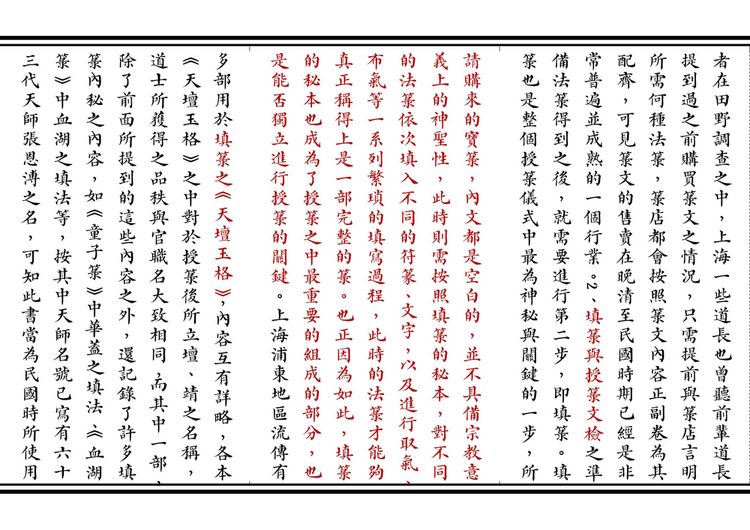 者在田野調查之中，上海一些道長也曾聽前輩道長
提到過之前購買籙文之情況，只需提前與籙店言明
所需何種法籙，籙店都會按照籙文內容正副卷為其
配齊，可見籙文的售賣在晚清至民國時期已經是非
常普遍並成熟的一個行業。2、填籙與授籙文檢之準
備法籙得到之後，就需要進行第二步，即填籙。填
籙也是整個授籙儀式中最為神秘與關鍵的一步，所
請購來的寶籙，內文都是空白的，並不具備宗教意
義上的神聖性，此時則需按照填籙的秘本，對不同
的法籙依次填入不同的符籙、文字，以及進行取氣、
布氣等一系列繁瑣的填寫過程，此時的法籙才能夠
真正稱得上是一部完整的籙。也正因為如此，填籙
的秘本也成為了授籙之中最重要的組成的部分，也
是能否獨立進行授籙的關鍵。上海浦東地區流傳有
多部用於填籙之《天壇玉格》，內容互有詳略，各本
《天壇玉格》之中對於授籙後所立壇、靖之名稱，
道士所獲得之品秩與官職名大致相同，而其中一部，
除了前面所提到的這些內容之外，還記錄了許多填
籙內秘之內容，如《童子籙》中華蓋之填法、《血湖
籙》中血湖之填法等，按其中天師名號已寫有六十
三代天師張恩溥之名，可知此書當為民國時所使用